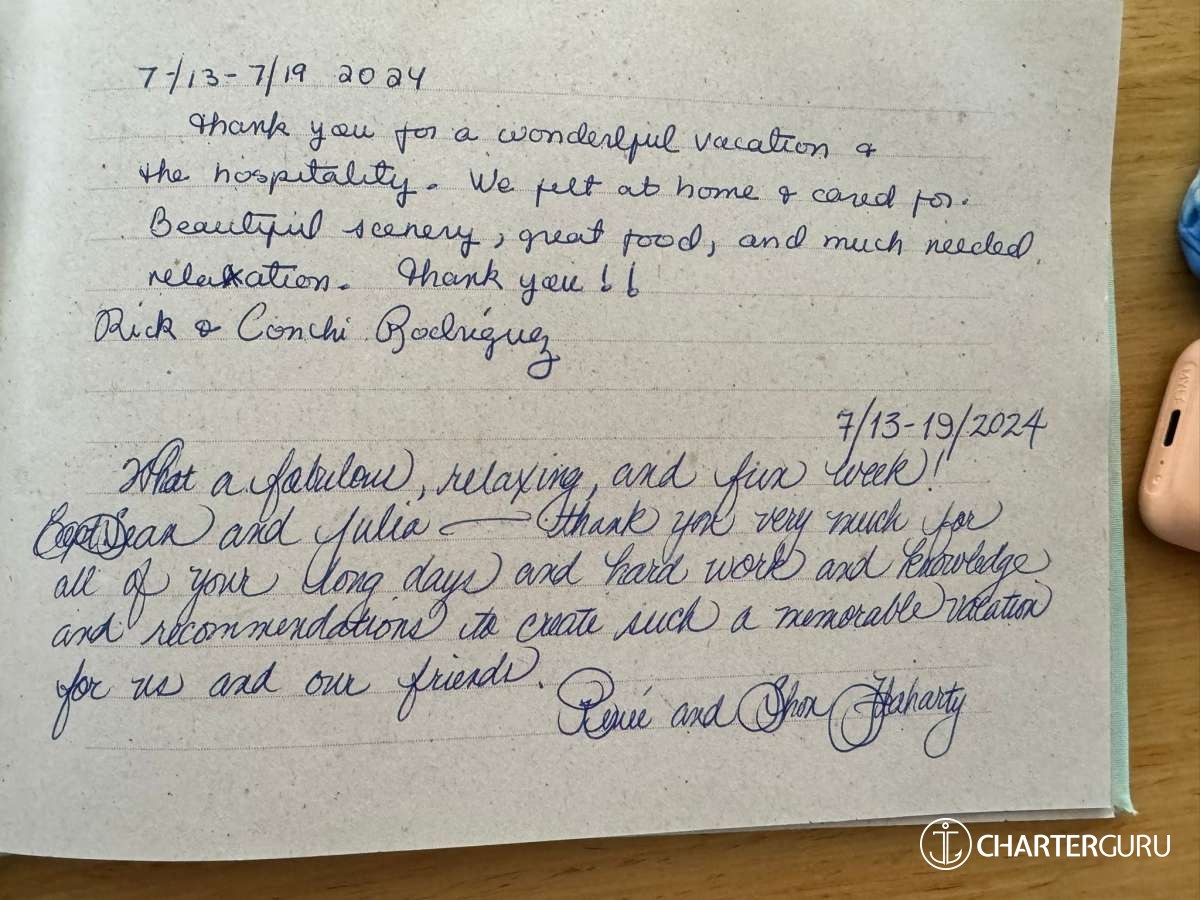 7/13-7/19 2024
Thank you for a wonderful vacation &
the hospitality. We felt at home & cared for.
Beautiful scenery, great food, and much needed
relaxation. Thank you!!
Rick & Conchi Rodriguez
7/13-19/2024
What a fabulous, relaxing, and fun week!
Capt Sean and Julia — thank you very much for
all of your long days and hard work and knowledge
and recommendations to create such a memorable vacation
for us and our friends.
Renée and Shon Flaharty
CHARTERGURU